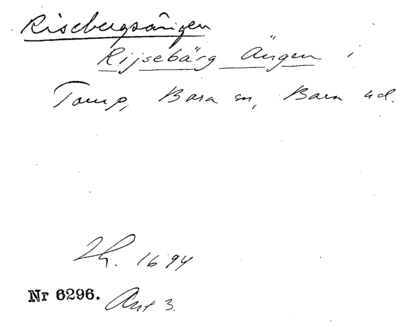 Risebergsängen
Rijsebärg Ängen i
Torup, Bara sn, Bara hd.
Lh. 1694
Nr 6296. Avt 3.